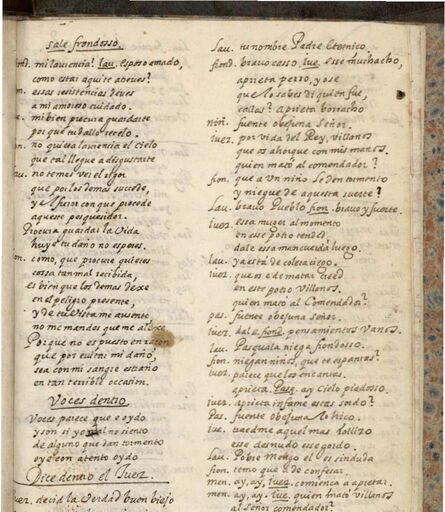 sale frondosso.
ond. mi laviencia? lau. esposo amado,
como estai aqui te atreves?
on. essas resistencias leves
a mi amoroso cuidado.
mi bien procura guardarte
por que tu daño recelo.
on. no quiera laviencia el cielo
que tal llegue a disgustarte
au. no temes ver el rigor
que por los demas succede,
y el furor con que procede
aqueste pesquesidor.
Procura guardar la Vida
huye tu daño no esperes.
on. como, que procure quieres
cossa tan mal recibida,
es bien que los demas dexe
en el peligro presente,
y de tu vista me ausente
no me mandes que me alexe
Porque no es puesto en razon
que por euitar mi daño,
sea con mi sangre estraño
en tan terrible occasion.
Voces dentro
Voces parece que e oydo
y son si yo mal no siento
de alguno que dan tormento
oye con atento oydo
Dice dentro el Juez.
uez. decid la Verdad buen biejo
Lau. tu nombre Padre Eternico.
frond. bravo casso, Juez. esse muchacho,
aprieta perro, yo se
que lo sabes di quien fue,
callas? aprieta borracho
niñ. fuente obejuna Señor.
Juez. por vida del Rey, villanos
que os ahorque con mis manos.
quien mató al comendador?
fron. que a un niño le den tormento
y niegue de aquesta suerte?
Lau. bravo Pueblo fron. bravo y fuerte.
Juez. essa muger al momento
en esse potro tended,
dale essa mancuerda luego.
Lau. ya está de colera ciego.
Juez. que os e de matar creed
en este potro villanos,
quien mató al Comendador?
Pas. fuente obejuna señor.
Juez. dale, frond. pensamientos vanos.
Lau. Pasquala niega frondosso.
fron. niegan niños, que te espantas?
Juez. parece que los encantas.
aprieta Pasq. ay cielo piadosso.
Juez. aprieta infame estas sordo?
Pas. fuente obejuna lo hico.
Juez. traedme aquel mas rollizo
esse desnudo esse gordo.
Lau. Pobre Mengo el es sin duda
fron. temo que a de confesar.
men. ay, ay, Juez. comienca a apretar.
men. ay, ay. Juez. quien mató villanos
al Señor comendador?